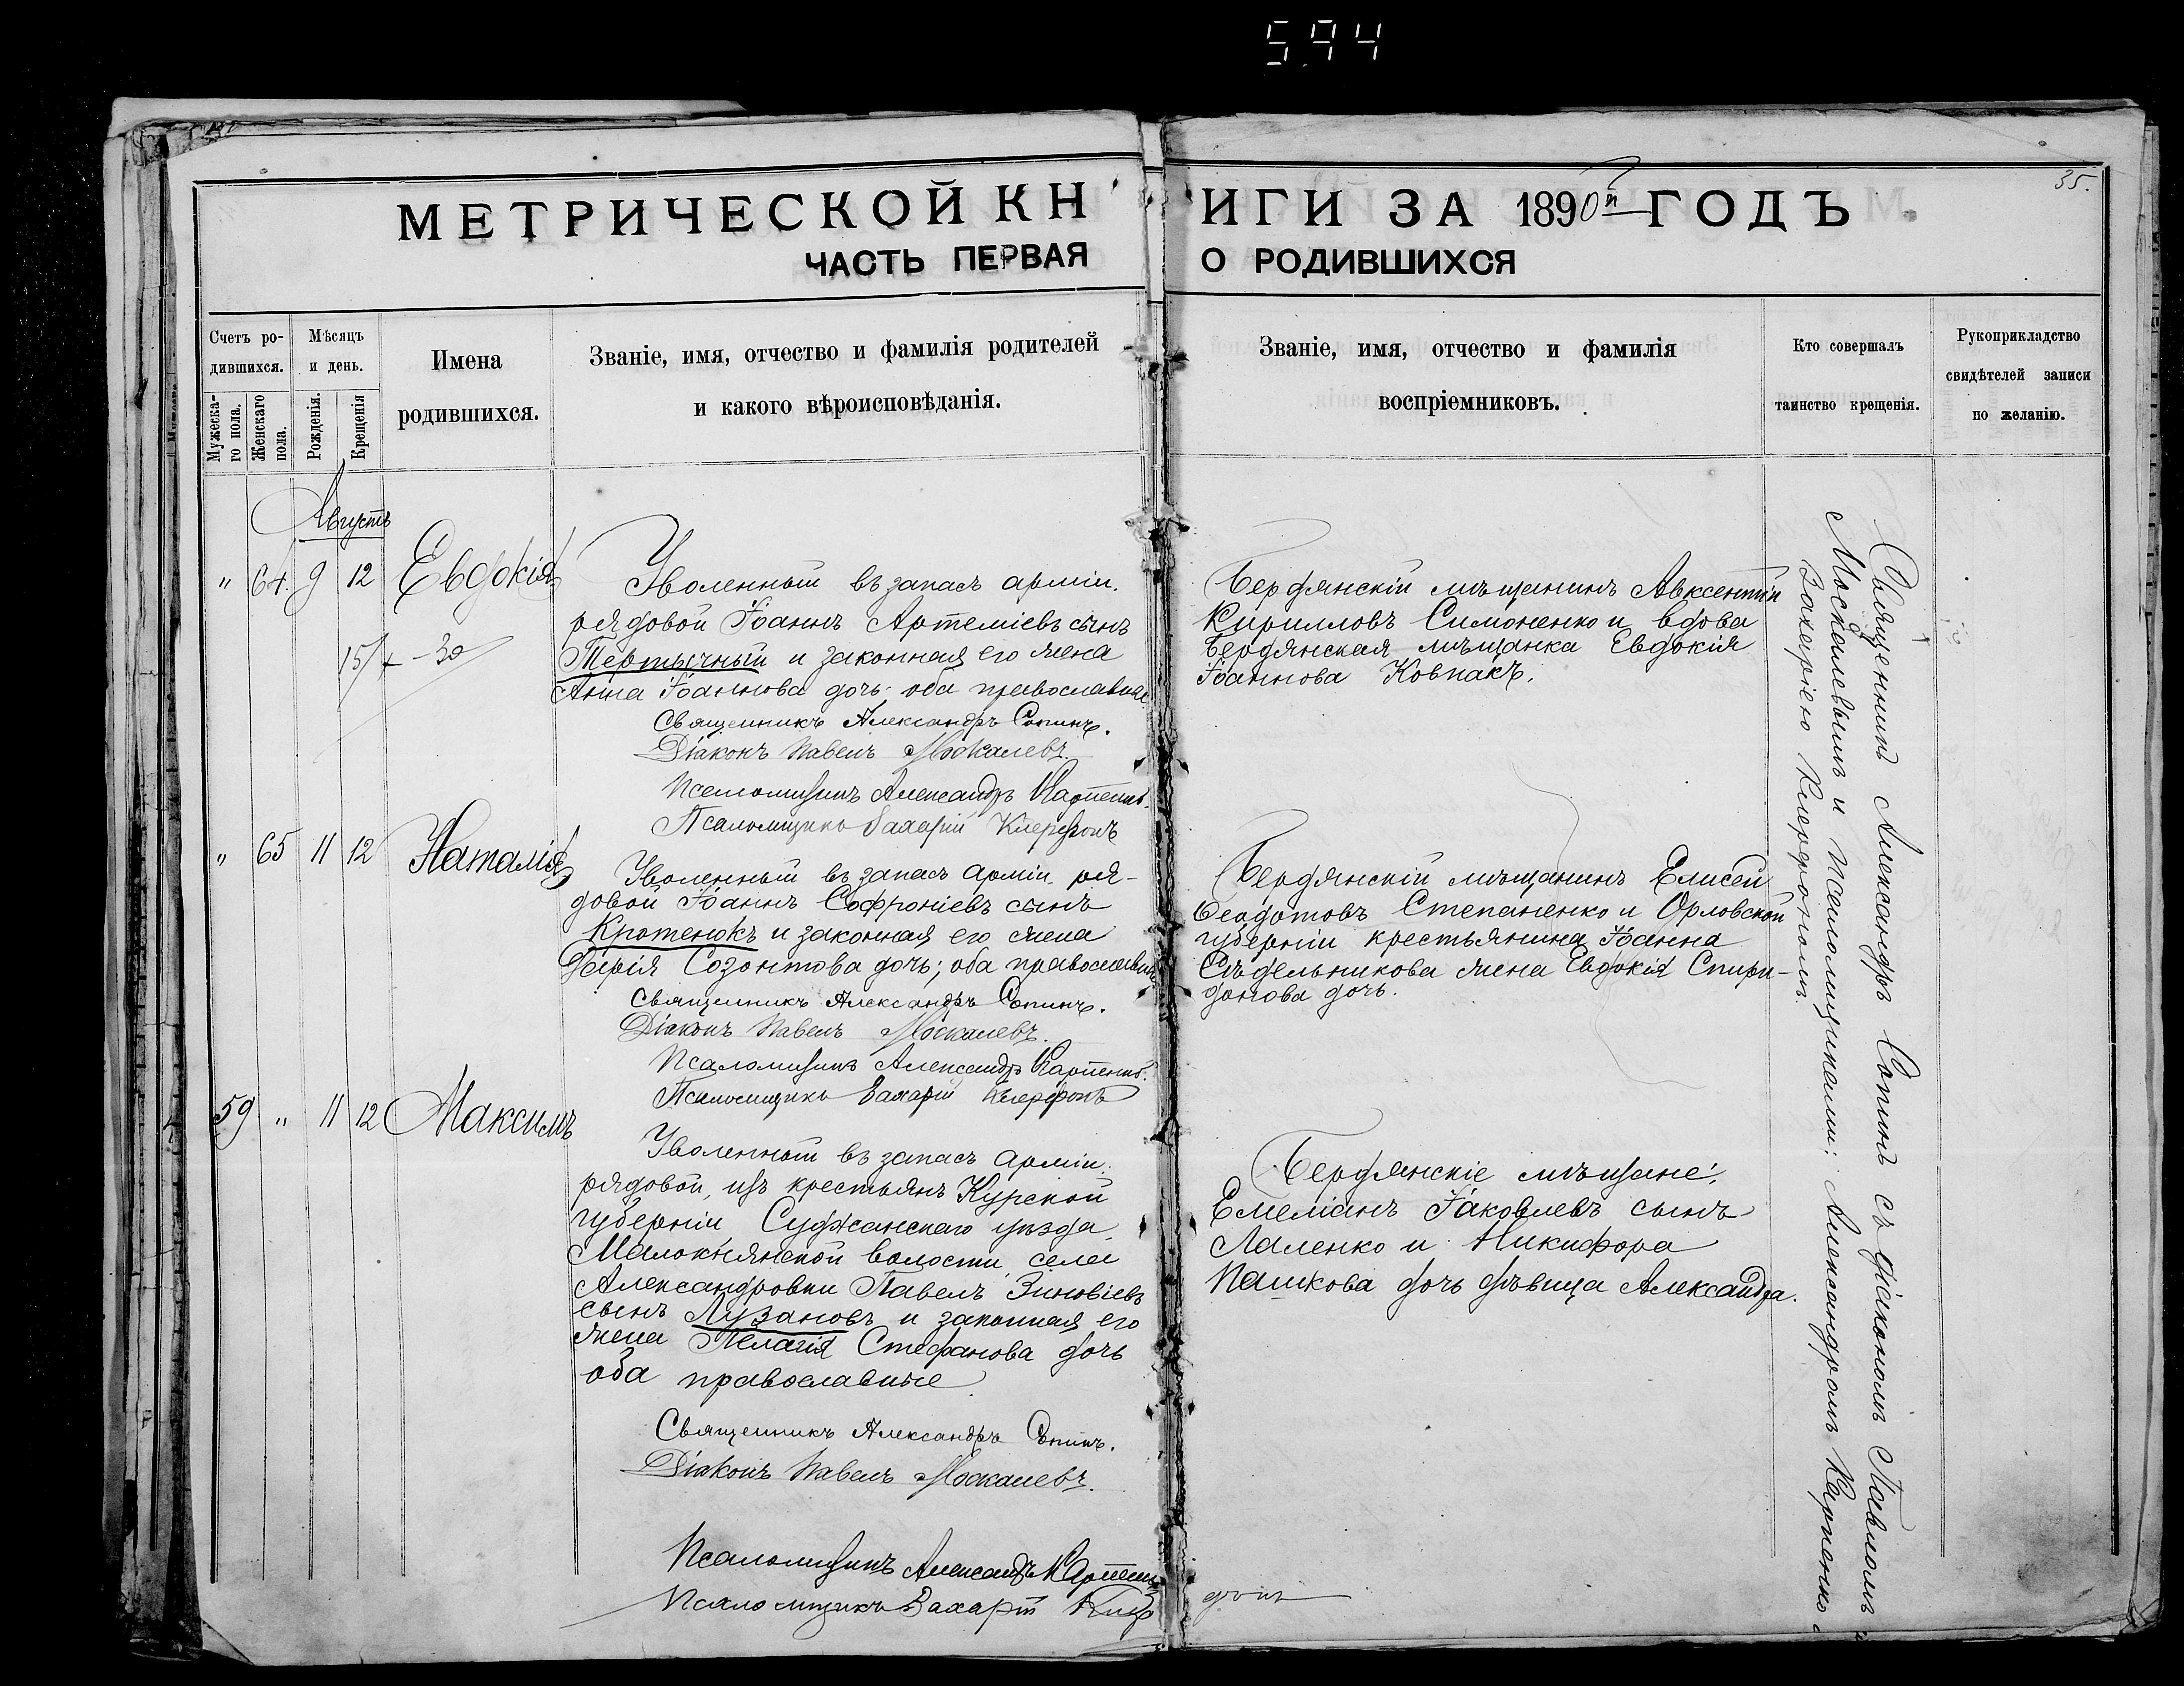 594
35.
МЕТРИЧЕСКОЙ КН
ИГИ ЗА 1890й ГОДЪ
ЧАСТЬ ПЕРВАЯ
О РОДИВШИХСЯ
Счетъ ро-
дившихся.
Мужеска-
го пола.
Женскаго
пола.
Мѣсяцъ
и день.
Рожденія.
Крещенія
Имена
родившихся.
Званіе, имя, отчество и фамилія родителей
и какого вѣроисповѣданія.
Званіе, имя, отчество и фамилія
воспріемниковъ.
Кто совершалъ
таинство крещенія.
Рукоприкладство
свидѣтелей записи
по желанію.
Августъ
" 64. 9 12 Евдокія
15/ 30
Уволенный въ запасъ арміи.
рядовой Іоаннъ Артеміевъ сынъ
Тертычный и законная его жена
Анна Іоаннова дочь; оба православные
Священникъ Александръ Сопинъ.
Діаконъ Павелъ Москалевъ.
Псаломщикъ Александръ Карпенко.
Псаломщикъ Захарій Клерфонъ
Бердянскій мѣщанинъ Авксентій
Кирилловъ Симоненко и вдова
Бердянская мѣщанка Евдокія
Іоаннова Ковпакъ.
" 65 11 12 Наталія
Уволенный въ запасъ арміи ря-
довой Іоаннъ Софроніевъ сынъ
Кротенокъ и законная его жена
Дарія Созонтова дочь; оба православные
Священникъ Александръ Сопинъ.
Діаконъ Павелъ Москалевъ.
Псаломщикъ Александръ Карпенко.
Псаломщикъ Захарій Клерфонъ
Бердянскій мѣщанинъ Елисей
Ѳеодотовъ Степаненко и Орловской
губерніи крестьянина Іоанна
Сѣдельникова жена Евдокія Спири-
донова дочь.
59 " 11 12 Максимъ
Уволенный въ запасъ арміи.
рядовой, изъ крестьянъ Курской
губерніи Суджанскаго уѣзда
волости села
Александровки Павелъ Зиновіевъ
сынъ Лузановъ и законная его
жена Пелагія Стефанова дочь
оба православные
Священникъ Александръ Сопинъ.
Діаконъ Павелъ Москалевъ.
Псаломщикъ Александръ Карпенко
Псаломщикъ Захарій Клер
фонъ
Бердянскіе мѣщане:
Емеліанъ Іаковлевъ сынъ
Лаленко и Никифора
Пашкова дочь дѣвица Александра.
Священникъ Александръ Сопинъ съ діакономъ Павломъ
Москалевымъ и псаломщиками: Александромъ Карпенко и
Захаріею Клерфономъ.